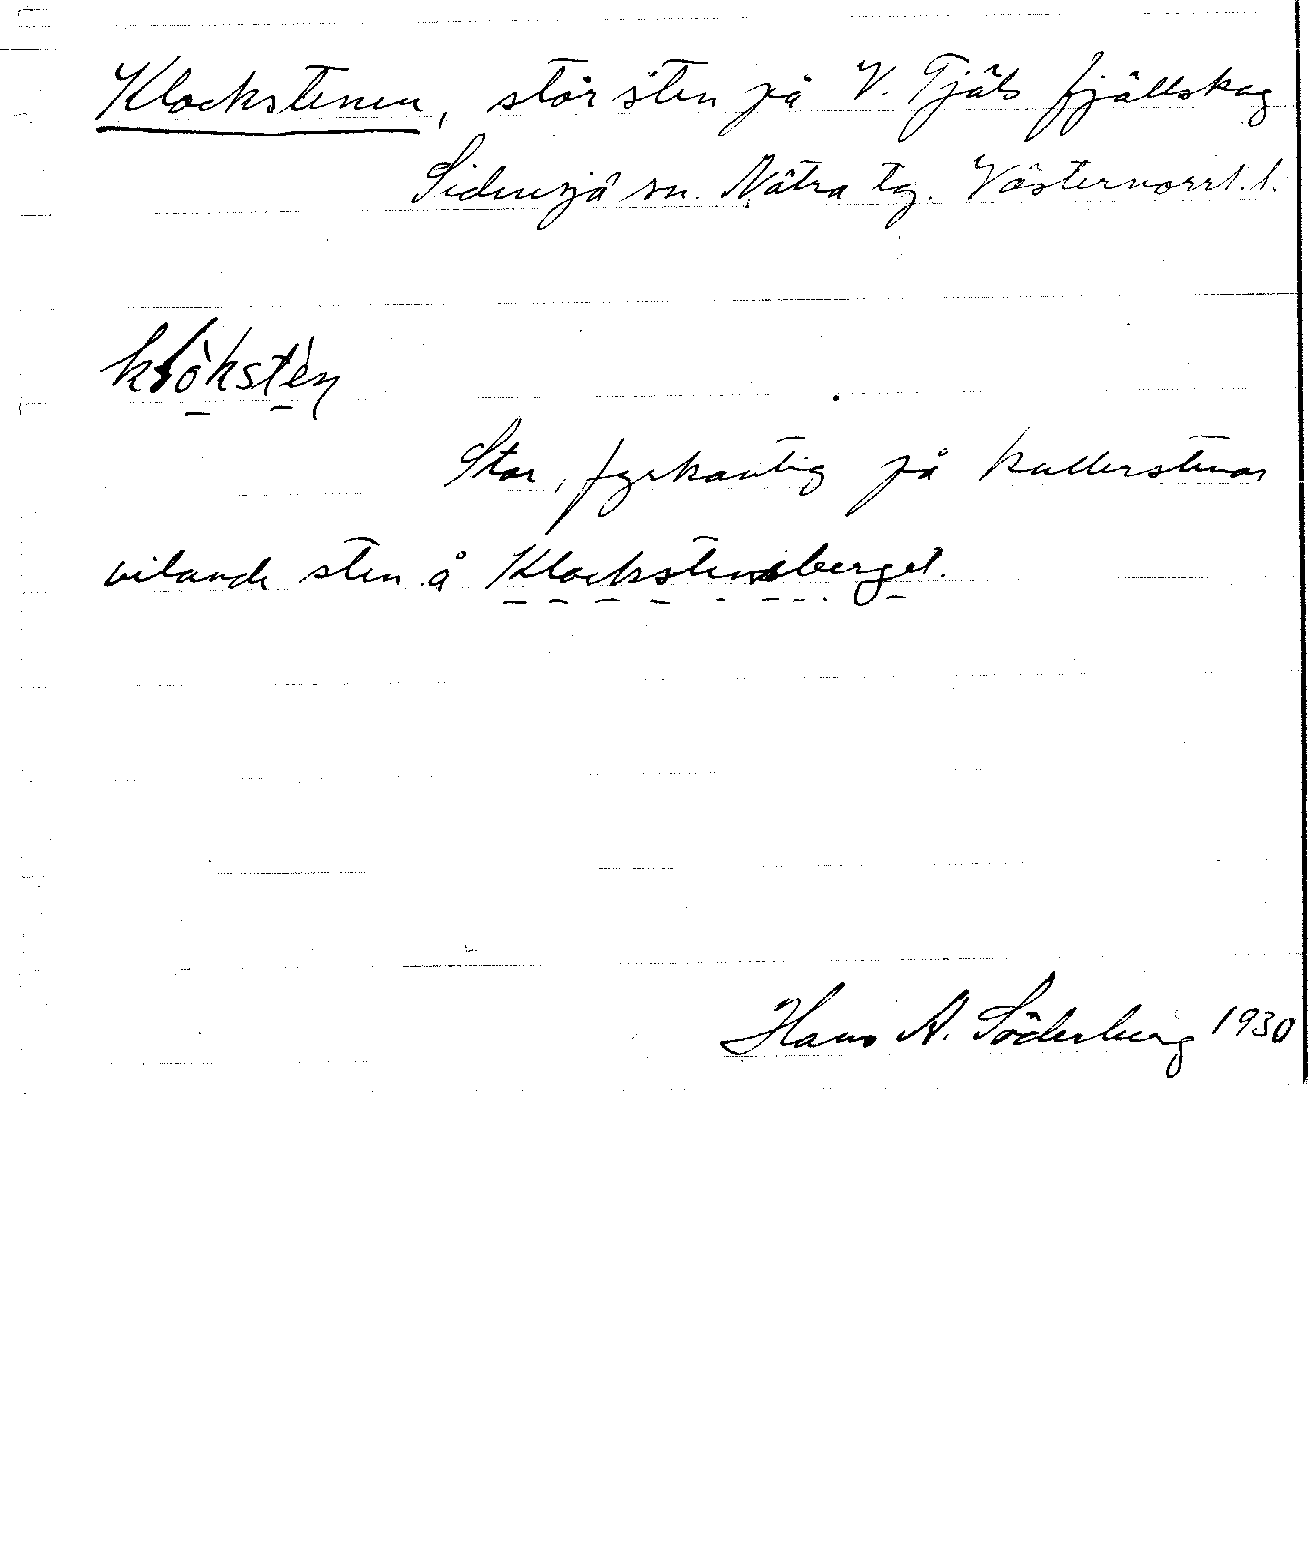 Klockstenen, stor sten på V. Tjäls fjällskog
Sidensjö sn. Nätra tg. Västernorrl. l.
klòkstèn
Stor, fyrkantig på kullerstenar
vilande sten å Klockstensberget.
Hans A. Söderberg 1930